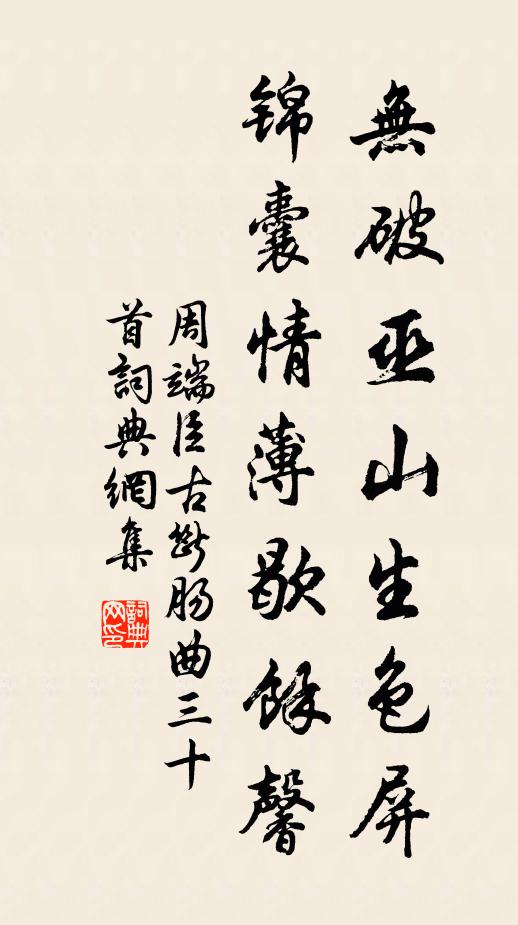 無破巫山生色屏
锦囊情薄歇餘馨
周端臣古斷肠曲三十
首詞典網集
詞典
网印